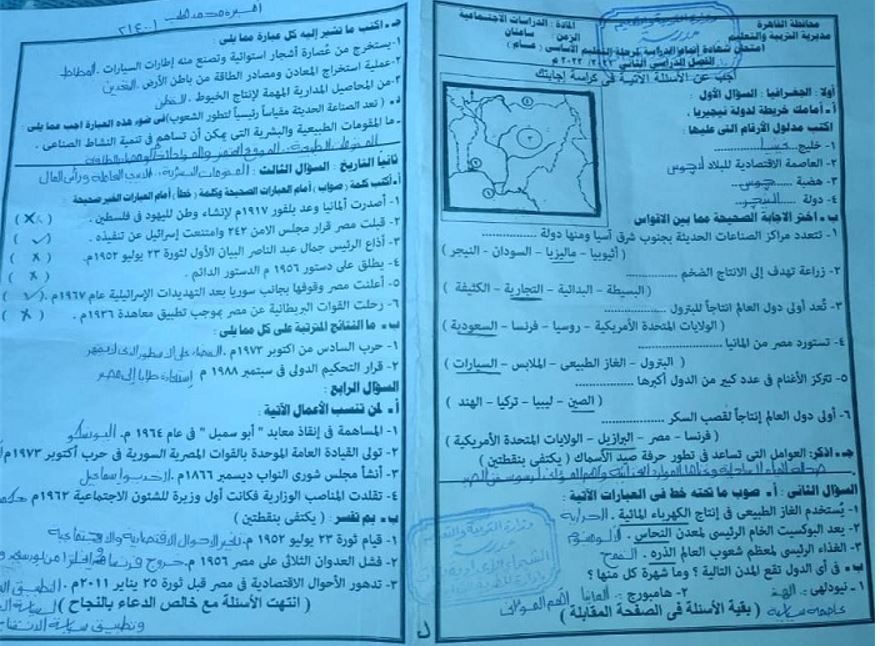 محافظة القاهرة
مديرية التربية والتعليم
المادة : الدراسات الاجتماعية
الزمن : ساعتان
امتحان شهادة إتمام الدراسة لمرحلة التعليم الأساسى ( عام )
الفصل الدراسى الثانى ٢٠٢٢/ ٢٠٢٣ م
أجب عن الأسئلة الآتية فى كراسة إجابتك
أولا : الجغرافيا : السؤال الأول :
أ - أمامك خريطة لدولة نيجيريا .
اكتب مدلول الأرقام التى عليها :
١- خليج غينيا
٢- العاصمة الاقتصادية للبلاد لاجوس
٣- هضبة جوس
٤- دولة النيجر
ب - اختر الاجابة الصحيحة مما بين الاقواس
١- تتعدد مراكز الصناعات الحديثة بجنوب شرق آسيا ومنها دولة ..............
( أثيوبيا – ماليزيا – السودان – النيجر )
٢- زراعة تهدف إلى الانتاج الضخم ..............
( البسيطة – البدائية – التجارية – الكثيفة )
٣- تُعد أولى دول العالم انتاجاً للبترول ..............
( الولايات المتحدة الأمريكية – روسيا – فرنسا – السعودية )
٤- تستورد مصر من المانيا ..............
( البترول – الغاز الطبيعى – الملابس – السيارات )
٥- تتركز الأغنام فى عدد كبير من الدول أكبرها ..............
( الصين – ليبيا – تركيا – الهند )
٦- أولى دول العالم إنتاجاً لقصب السكر ..............
( فرنسا – مصر – البرازيل – الولايات المتحدة الأمريكية )
جـ - اذكر: العوامل التى تساعد فى تطور حرفة صيد الأسماك ( يكتفى بنقطتين )
السؤال الثانى : أ - صوب ما تحته خط فى العبارات الآتية :
١- يُستخدم الغاز الطبيعى فى إنتاج الكهرباء المائية . الحرارية
٢- يعد البوكسيت الخام الرئيسى لمعدن النحاس . الألومنيوم
٣- الغذاء الرئيسى لمعظم شعوب العالم الذره . القمح
ب - فى أى الدول تقع المدن التالية ؟ وما شهرة كل منها ؟
١- نيودلهى :. الهند ٢- هامبورج :. ألمانيا أهم الموانى
عاصمة سياسية ( بقية الأسئلة فى الصفحة المقابلة )
جـ - اكتب ما تشير إليه كل عبارة مما يلى :
١- يستخرج من عُصارة أشجار استوائية وتصنع منه إطارات السيارات . المطاط
٢- عملية استخراج المعادن ومصادر الطاقة من باطن الأرض . التعدين
٣- من المحاصيل المدارية المهمة لإنتاج الخيوط . القطن
د - ( تعد الصناعة الحديثة مقياساً رئيسياً لتطور الشعوب) فى ضوء هذه العبارة اجب عما يلى :
- ما المقومات الطبيعية والبشرية التى يمكن أن تساهم فى تنمية النشاط الصناعى .
ثانيا التاريخ : السؤال الثالث : المقومات البشرية : الايدى العاملة ورأس المال
أ - أكتب كلمة ( صواب ) أمام العبارات الصحيحة وكلمة ( خطأ ) أمام العبارات الغير صحيحة
١- أصدرت ألمانيا وعد بلفور ١٩١٧م لإنشاء وطن لليهود فى فلسطين . ( X )
٢- قبلت مصر قرار مجلس الامن ٢٤٢ وامتنعت إسرائيل عن تنفيذه . ( ✓ )
٣- أذاع الرئيس جمال عبد الناصر البيان الأول لثورة ٢٣ يوليو ١٩٥٢م. ( X )
٤- يطلق على دستور ١٩٥٦ م الدستور الدائم . ( X )
٥- أعلنت مصر وقوفها بجانب سوريا بعد التهديدات الإسرائيلية عام ١٩٦٧م . ( ✓ )
٦- رحلت القوات البريطانية عن مصر بموجب تطبيق معاهدة ١٩٣٦م . ( X )
ب - ما النتائج المترتبة على كل مما يلى :
١- حرب السادس من اكتوبر ١٩٧٣م .
٢- قرار التحكيم الدولى فى سبتمبر ١٩٨٨ م استعادة طابا إلى مصر
السؤال الرابع :
أ - لمن تنسب الأعمال الآتية :
١- المساهمة فى إنقاذ معابد " أبو سمبل " فى عام ١٩٦٤ م. اليونسكو
٢- تولى القيادة العامة الموحدة بالقوات المصرية السورية فى حرب أكتوبر ١٩٧٣م
٣- أنشأ مجلس شورى النواب ديسمبر ١٨٦٦م .
٤- تقلدت المناصب الوزارية فكانت أول وزيرة للشئون الاجتماعية ١٩٦٢م
ب - بم تفسر : ( يكتفى بنقطتين )
١- قيام ثورة ٢٣ يوليو ١٩٥٢ م.
٢- فشل العدوان الثلاثى على مصر ١٩٥٦ م.
٣- تدهور الأحوال الاقتصادية فى مصر قبل ثورة ٢٥ يناير ٢٠١١م .
( انتهت الأسئلة مع خالص الدعاء بالنجاح )